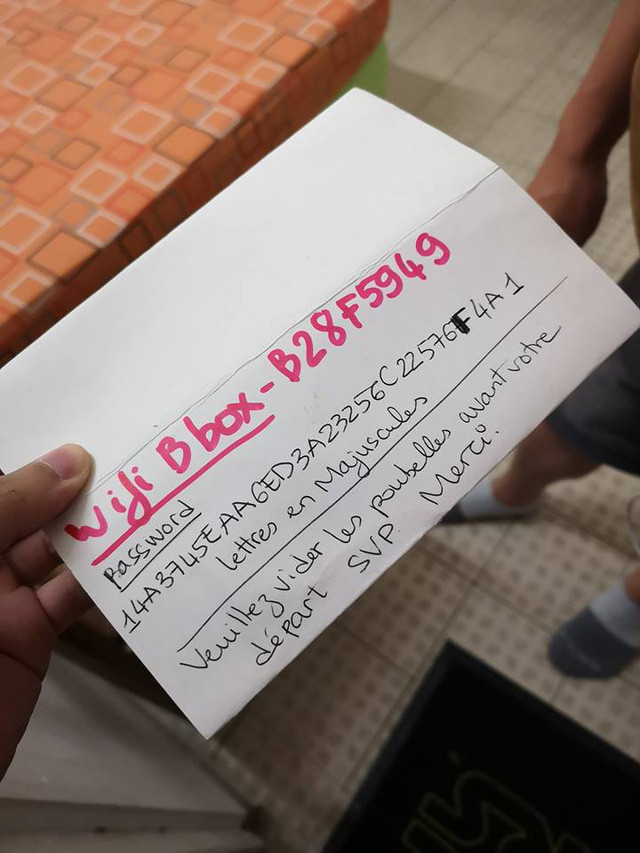 Wifi Bbox-B28F5949
Password
14A3745EAA6ED3A23256C22576F4A1
lettres en Majuscules
Veuillez vider les poubelles avant votre
départ SVP. Merci.